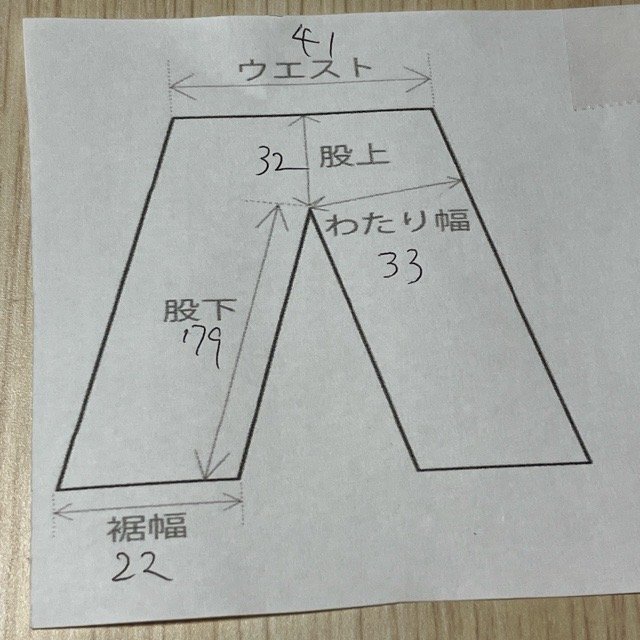 41
ウエスト
32 股上
わたり幅
33
股下
79
裾幅
22